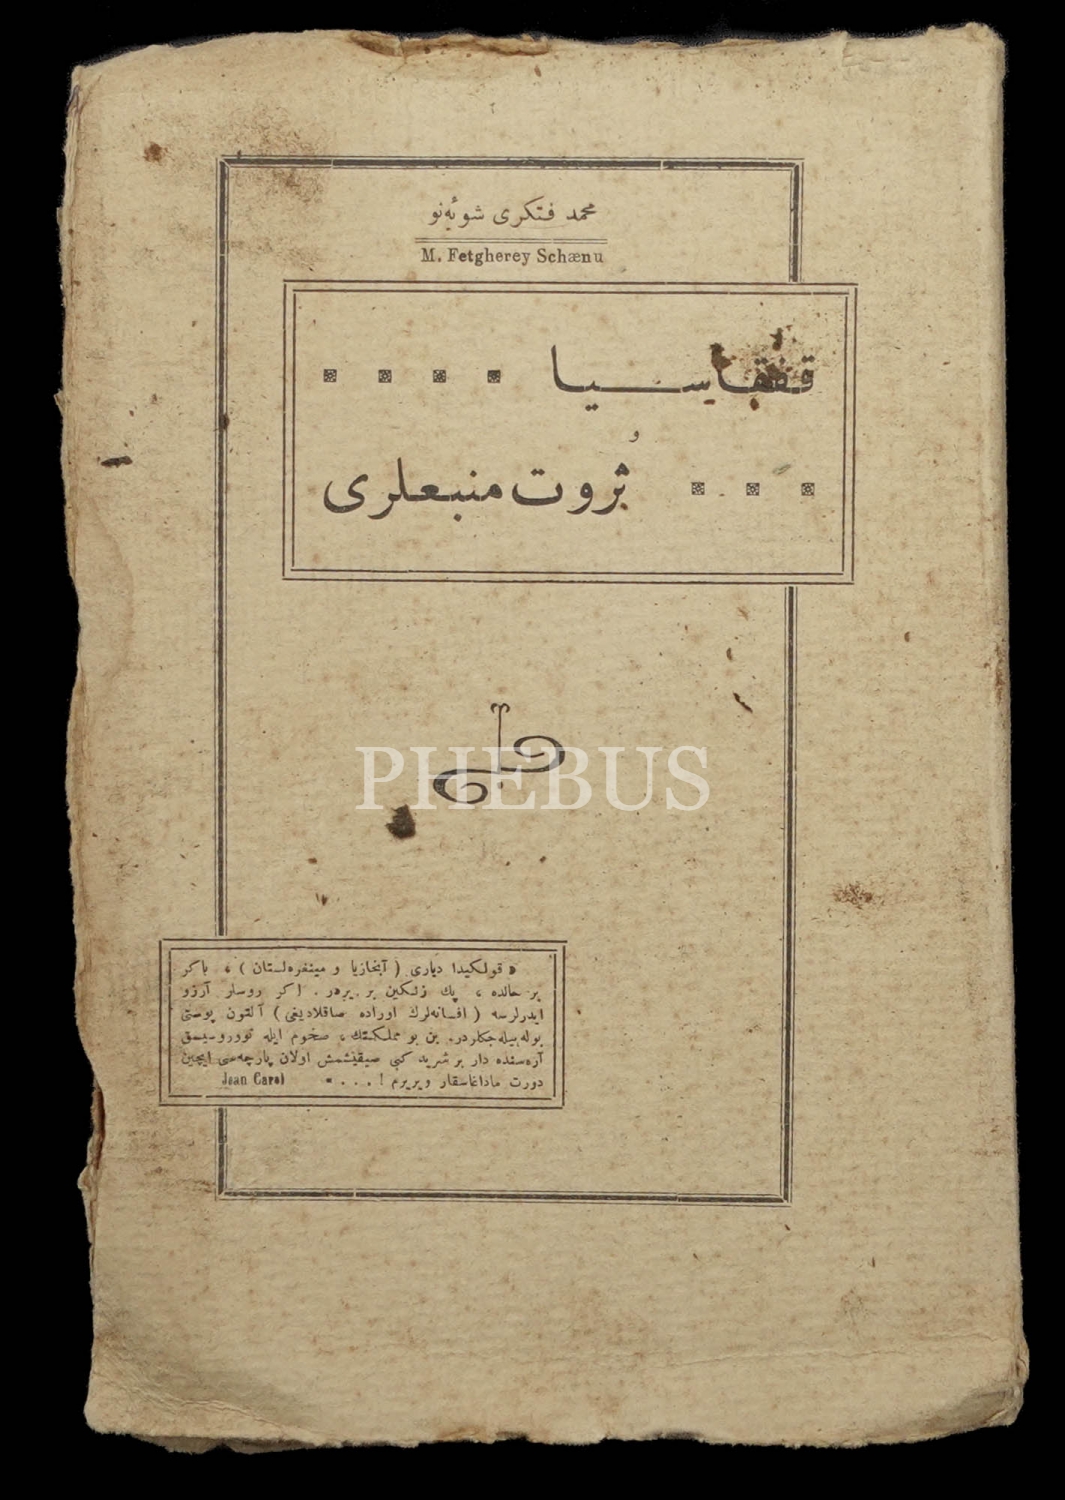 محمد فتكری شوئه‌نو
M. Fetgherey Schænu
قفقاسيا
و
ثروت منبعلری
PHEBUS
« قولكيدا دياری ( آبخازيا و مينغره‌لستان ) ، باكر
بر حالده ، پك زنكين بر يردر . اكر روسلر آرزو
ايدرلرسه ( افسانه‌لرك اوراده صاقلاديغی ) آلتون پوستی
بوله‌بيله‌جكلردر. بن بو مملكتك ، صخوم ايله نووروسيسق
آره‌سنده دار بر شريد كبی صيقيشمش اولان پارچه‌سی ايچين
دورت ماداغاسقار ويريرم ! . . . »
Jean Carol